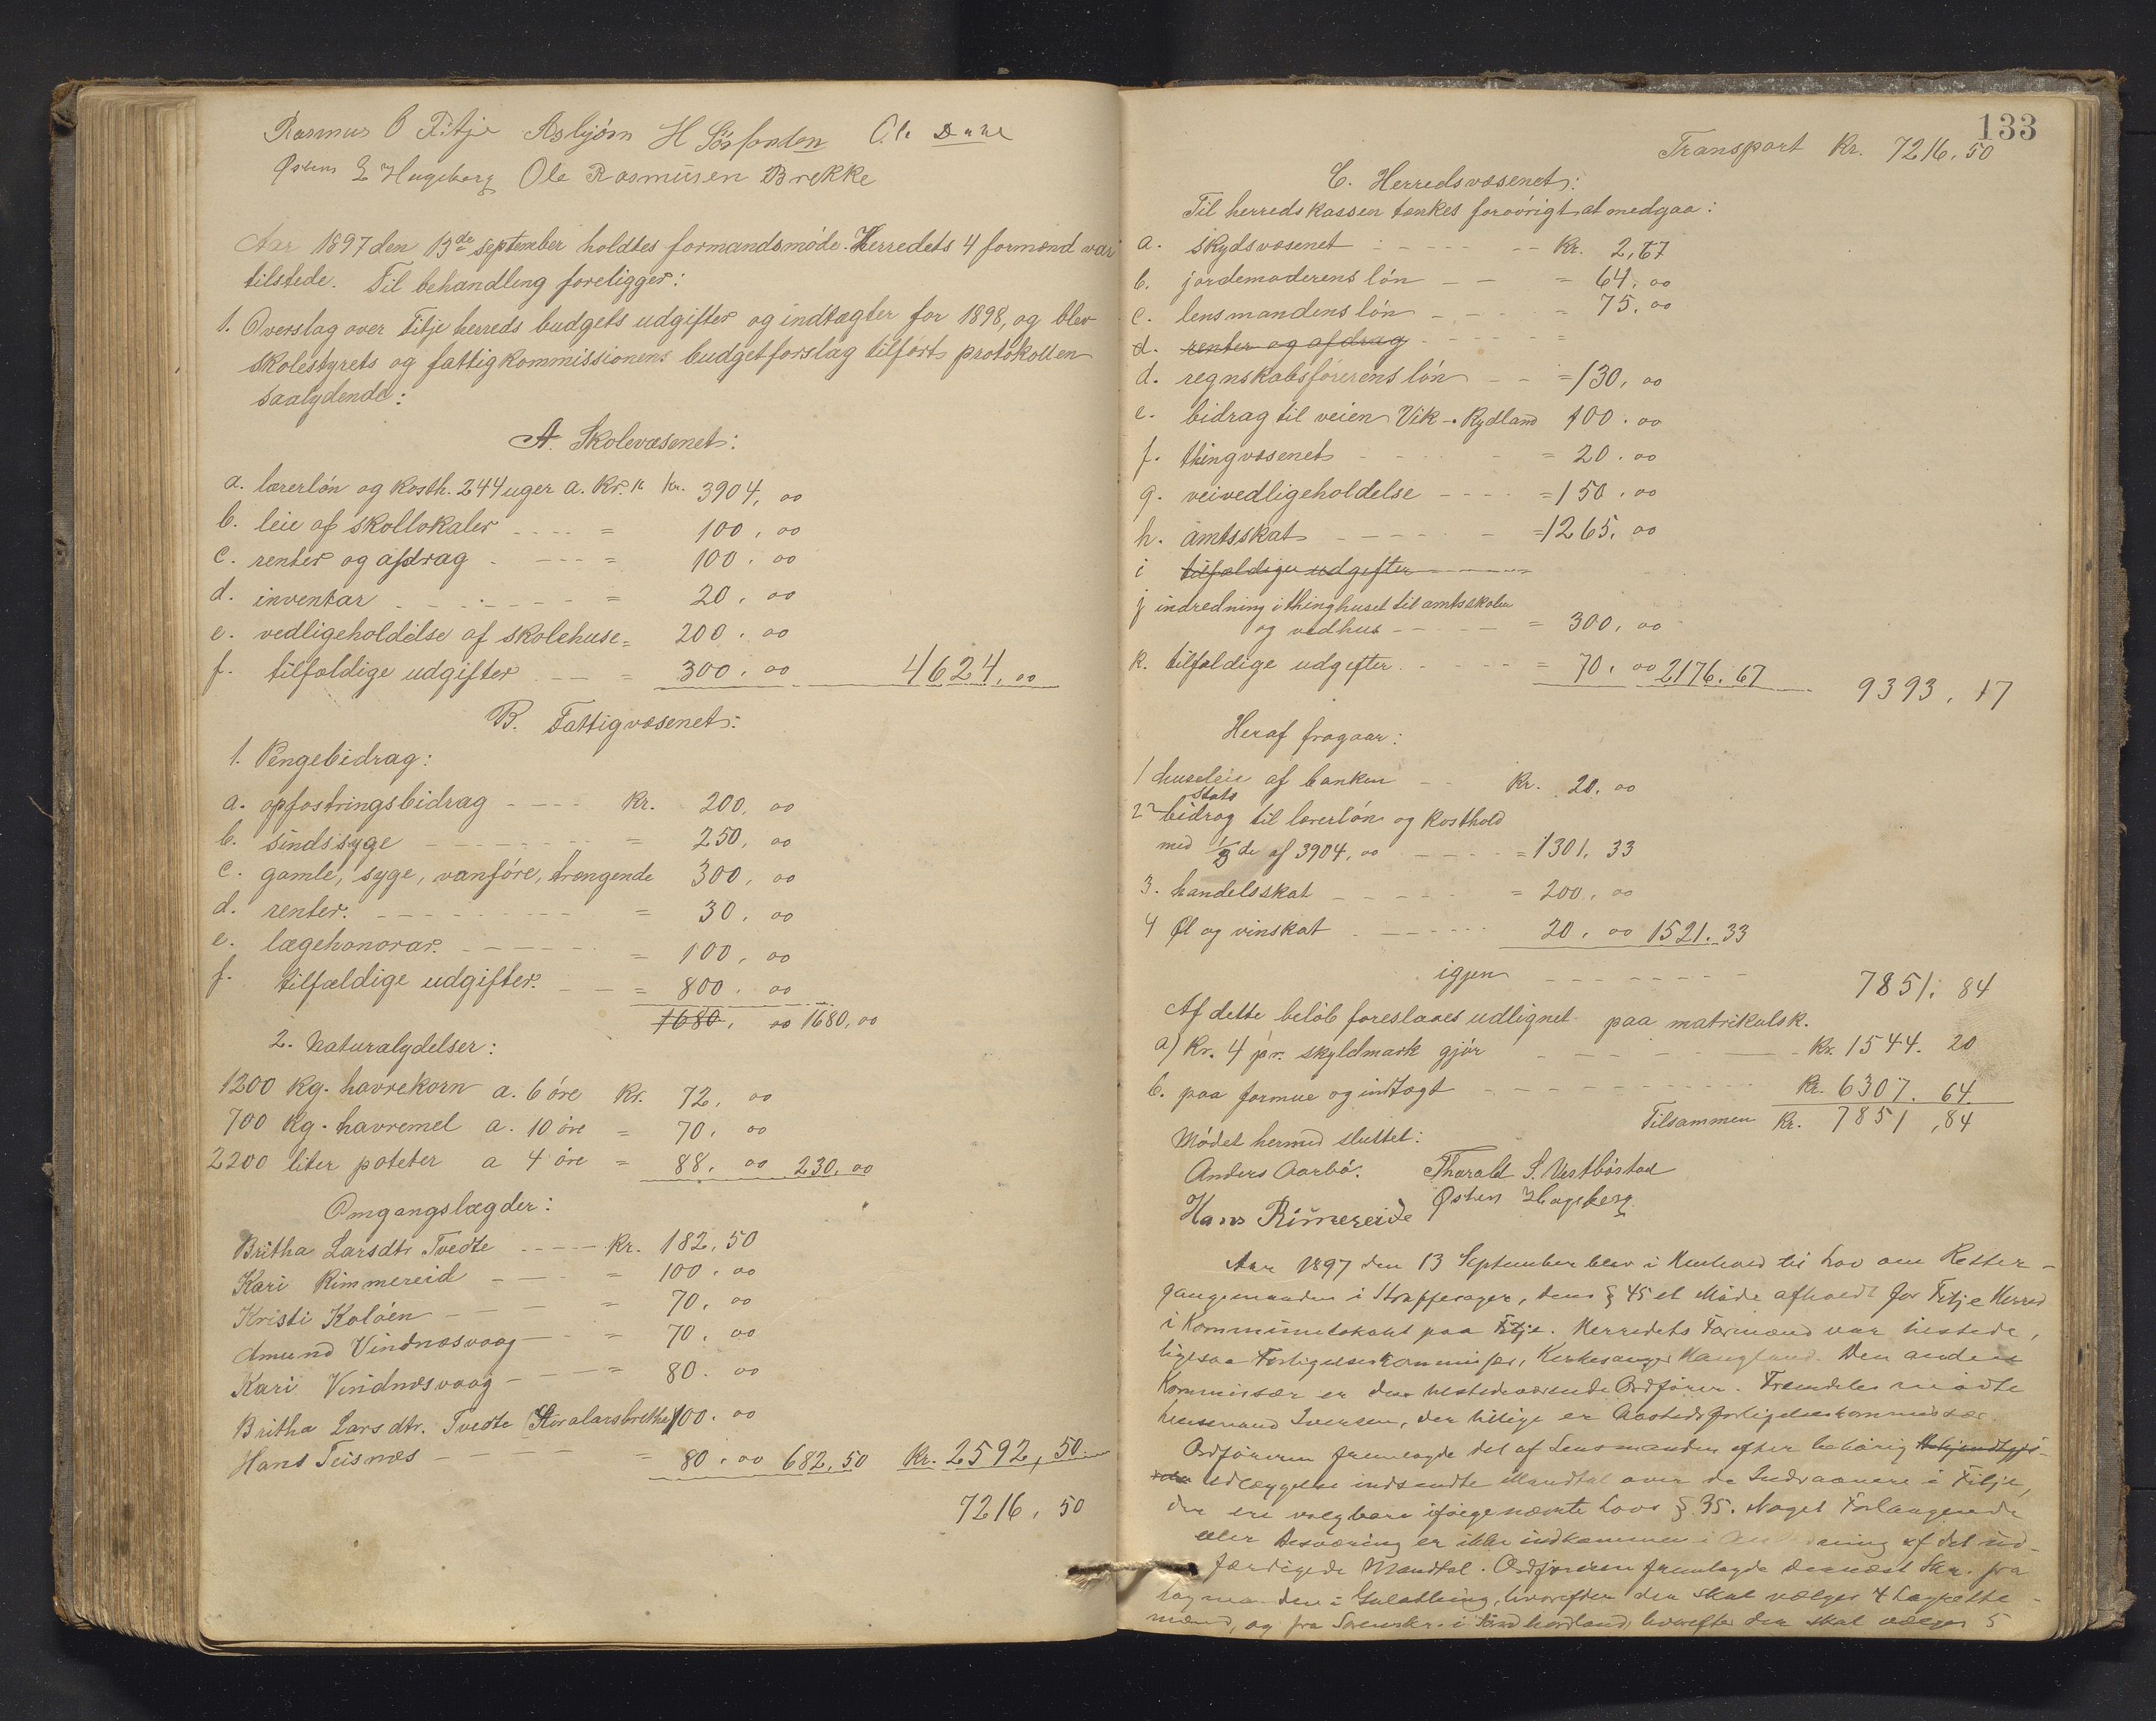 Rasmus O Fitje Asbjörn H Sörfonden Ole Dahl
Østen E Hageberg Ole Rasmusen Brekke
Aar 1897 den 13de september holdtes formandsmöde. Herredets 4 formænd var
tilstede. Til behandling foreligger:
1. Overslag over Fitje herreds budgets udgifter og indtægter for 1898, og blev
skolestyrets og fattigkommissionens budgetforslag tilfört protokollen
saalydende:
A. Skolevæsenet:
a. lærerlön og kosth. 244 uger a. Kr. 16 kr. 3904, 00
b. leie af skollokaler - - - - = 100, 00
c. renter og afdrag - - - - = 100, 00
d. inventar - - - - - - = 20, 00
e. vedligeholdelse af skolehuse = 200, 00
f. tilfældige udgifter - - - = 300, 00 4624, 00
B. Fattigvæsenet:
1. Pengebidrag:
a. opfostringsbidrag - - - - kr. 200, 00
b. sindssyge - - - - - - = 250, 00
c. gamle, syge, vanföre, trængende 300, 00
d. renter. - - - - - - = 30, 00
e. lægehonorar. - - - - - = 100, 00
f. tilfældige udgifter. - - - = 800, 00
1680, 00 1680, 00
2. Naturalydelser:
1200 kg. havrekorn a. 6 öre kr. 72, 00
700 kg. havremel a. 10 öre = 70, 00
2200 liter poteter a 4 öre = 88, 00 230, 00
Omgangslægder:
Britha Larsdtr Tvedte - - - - kr. 182, 50
Kari Rimmereid - - - = 100, 00
Kristi Kalöen - - - - = 70, 00
Amund Vindnæsvaag - - = 70, 00
Kari Vindnæsvaag - - - = 80. 00
Britha Larsdtr. Tvedte 100. 00
Hans Teisnæs - - - - = 80, 00 682, 50 Kr. 2592, 50
7216, 50
133
Transport Kr. 7216, 50
C. Herredsvæsenet:
Til herredskassen tænkes foroörigt at medgaa:
a. skydsvæsenet - - - - - - Kr. 2,67
b. jordemoderens lön - - = 64, 00
c. lensmandens lön - - - = 75, 00
d. renter og afdrag - - - - - =
d. regnskabsförerens lön - - = 130, 00
e. bidrag til veien Vik - Rydland 100. 00
f. thingvæsenet - - - - = 20. 00
g. veivedligeholdelse - - - - = 150, 00
h. amtsskat - - - - - - = 1265, 00
i tilfældige udgifter - - - - =
j indredning i thinghuset til amtsskolen
og vedhus - - - - = 300, 00
k. tilfældige udgifter. - - - - = 70, 00 2176, 67 9393, 17
Heraf fragaar:
1 husleie af banken - - Kr. 20, 00
stats
2 bidrag til lærerlön og kosthold
med 1/3 de af 3904, 00 - - - = 1301, 33
3. handelsskat - - - - - = 200, 00
4 Øl og vinskat - - - - - 20, 00 1521. 33
igjen - - - - - - - - 7851, 84
Af dette belöb foreslaaes udlignet paa matrikulsk.
a) Kr. 4 pr. skyldmark gjör - - - - - - Kr. 1544. 20
b. paa formue og indtægt - - - - - - - Kr. 6307. 64
Tilsammen Kr. 7851, 84
Mödet hermed sluttet:
Anders Aarbö. Thorald S. Vestböstad
Hans Rimereide Østen Hageberg
Aar 1897 den 13 September blev i Henhold til Lov om Retter-
gangsmaaden i Straffesager, dens § 45 et Möde afholdt for Fitje Herred
i Kommunelokalet paa Fitje. Herredets Formænd var tilstede,
ligesaa Forligelseskommissær, Kirkesanger Haugland. Den anden
Kommissær er den tilstedeværende Ordförer. Fremdeles mödte
Lensmand Iversen, der tillige er Aastedsforligelseskommissær.
Ordföreren fremlagde det af Lensmanden efter behörig
Udlæggelse indsendte Mandtal over de Indvaanere i Fitje,
der ere valgbare ifölge nævnte Lovs § 35. Noget Forlangende
eller Besværing er ikke indkommen i Anledning af det ud-
færdigede Mandtal. Ordföreren fremlagde dernæst Skr. fra
Lagmanden i Gulathing, hvorefter der skal vælges 4 Lagrette-
mænd, og fra Sorenskr. i Söndhordland, hvorefter der skal vælges 5